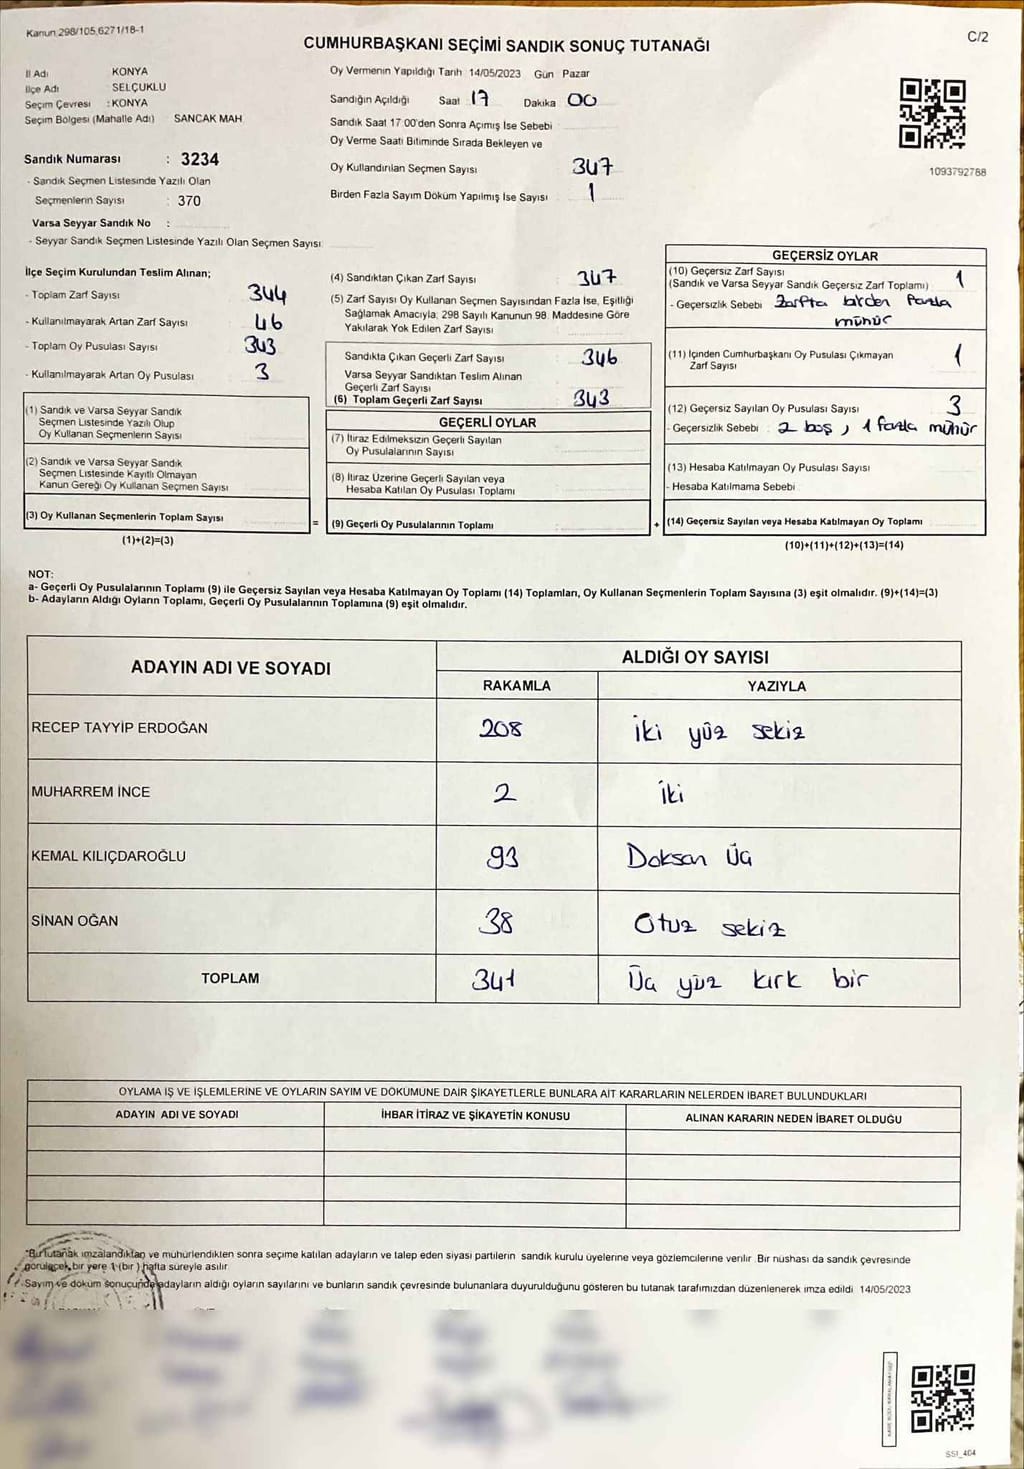 Kanun 298/105,6271/18-1
C/2
CUMHURBAŞKANI SEÇİMİ SANDIK SONUÇ TUTANAĞI
İl Adı KONYA
İlçe Adı SELÇUKLU
Seçim Çevresi : KONYA
Seçim Bölgesi (Mahalle Adı) SANCAK MAH
Sandık Numarası : 3234
- Sandık Seçmen Listesinde Yazılı Olan
Seçmenlerin Sayısı : 370
Varsa Seyyar Sandık No :
- Seyyar Sandık Seçmen Listesinde Yazılı Olan Seçmen Sayısı
Oy Vermenin Yapıldığı Tarih 14/05/2023 Gün Pazar
Sandığın Açıldığı Saat 17 Dakika 00
Sandık Saat 17:00'den Sonra Açımış İse Sebebi
Oy Verme Saati Bitiminde Sırada Bekleyen ve
Oy Kullandırılan Seçmen Sayısı 347
Birden Fazla Sayım Döküm Yapılmış İse Sayısı 1
1093792788
İlçe Seçim Kurulundan Teslim Alınan;
- Toplam Zarf Sayısı 344
- Kullanılmayarak Artan Zarf Sayısı 46
- Toplam Oy Pusulası Sayısı 343
- Kullanılmayarak Artan Oy Pusulası 3
(1) Sandık ve Varsa Seyyar Sandık
Seçmen Listesinde Yazılı Olup
Oy Kullanan Seçmenlerin Sayısı
(2) Sandık ve Varsa Seyyar Sandık
Seçmen Listesinde Kayıtlı Olmayan
Kanun Gereği Oy Kullanan Seçmen Sayısı
(3) Oy Kullanan Seçmenlerin Toplam Sayısı
(1)+(2)=(3)
(4) Sandıktan Çıkan Zarf Sayısı 347
(5) Zarf Sayısı Oy Kullanan Seçmen Sayısından Fazla İse, Eşitliği
Sağlamak Amacıyla; 298 Sayılı Kanunun 98. Maddesine Göre
Yakılarak Yok Edilen Zarf Sayısı
Sandıkta Çıkan Geçerli Zarf Sayısı 346
Varsa Seyyar Sandıktan Teslim Alınan
Geçerli Zarf Sayısı
(6) Toplam Geçerli Zarf Sayısı 343
GEÇERLİ OYLAR
(7) İtiraz Edilmeksizin Geçerli Sayılan
Oy Pusulalarının Sayısı
(8) İtiraz Üzerine Geçerli Sayılan veya
Hesaba Katılan Oy Pusulası Toplamı
= (9) Geçerli Oy Pusulalarının Toplamı +
GEÇERSİZ OYLAR
(10) Geçersiz Zarf Sayısı 1
(Sandık ve Varsa Seyyar Sandık Geçersiz Zarf Toplamı)
- Geçersizlik Sebebi Zarfta birden fazla
mühür
(11) İçinden Cumhurbaşkanı Oy Pusulası Çıkmayan
Zarf Sayısı 1
(12) Geçersiz Sayılan Oy Pusulası Sayısı 3
- Geçersizlik Sebebi : 2 boş, 1 fazla mühür
(13) Hesaba Katılmayan Oy Pusulası Sayısı
- Hesaba Katılmama Sebebi
(14) Geçersiz Sayılan veya Hesaba Katılmayan Oy Toplamı
(10)+(11)+(12)+(13)=(14)
NOT:
a- Geçerli Oy Pusulalarının Toplamı (9) ile Geçersiz Sayılan veya Hesaba Katılmayan Oy Toplamı (14) Toplamları, Oy Kullanan Seçmenlerin Toplam Sayısına (3) eşit olmalıdır. (9)+(14)=(3)
b- Adayların Aldığı Oyların Toplamı, Geçerli Oy Pusulalarının Toplamına (9) eşit olmalıdır.
ADAYIN ADI VE SOYADI
ALDIĞI OY SAYISI
RAKAMLA YAZIYLA
RECEP TAYYİP ERDOĞAN 208 İki yüz sekiz
MUHARREM İNCE 2 İki
KEMAL KILIÇDAROĞLU 93 Doksan Üç
SİNAN OĞAN 38 Otuz sekiz
TOPLAM 341 Üç yüz kırk bir
OYLAMA İŞ VE İŞLEMLERİNE VE OYLARIN SAYIM VE DÖKÜMÜNE DAİR ŞİKAYETLERLE BUNLARA AİT KARARLARIN NELERDEN İBARET BULUNDUKLARI
ADAYIN ADI VE SOYADI İHBAR İTİRAZ VE ŞİKAYETİN KONUSU ALINAN KARARIN NEDEN İBARET OLDUĞU
*Bu tutanak imzalandıktan ve mühürlendikten sonra seçime katılan adayların ve talep eden siyasi partilerin sandık kurulu üyelerine veya gözlemcilerine verilir. Bir nüshası da sandık çevresinde
görülecek bir yere 1 (bir) hafta süreyle asılır
Sayım ve döküm sonucunda adayların aldığı oyların sayılarını ve bunların sandık çevresinde bulunanlara duyurulduğunu gösteren bu tutanak tarafımızdan düzenlenerek imza edildi 14/05/2023
SSI_404